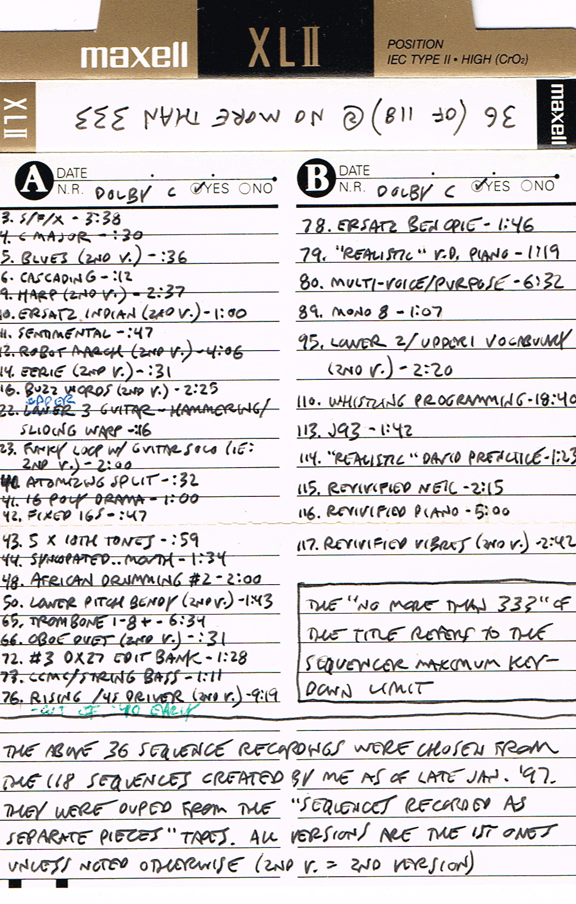 maxell
XLII
POSITION
IEC TYPE II • HIGH (CrO₂)
XLII
36 (OF 118) @ NO MORE THAN 333
maxell
A
DATE
N.R. DOLBY C YES NO
3. S/F/X - 3:38
4. C MAJOR - :30
5. BLUES (2ND V.) - :36
6. CASCADING - :12
9. HARP (2ND V.) - 2:37
10. ERSATZ INDIAN (2ND V.) - 1:00
11. SENTIMENTAL - :47
12. ROBOT MARCH (2ND V.) - 4:06
14. EERIE (2ND V.) - :31
16. BUZZ WORDS (2ND V.) - 2:25
UPPER
22. LOWER 3 GUITAR - HAMMERING/
SLIDING WARP - :16
23. FUNKY LOOP W/ GUITAR SOLO (IE:
2ND V.) - 2:00
40. ATOMIZING SPLIT - :32
41. 16 POLY DRAMA - 1:00
42. FIXED 16S - :47
43. 5 X 10TH TONES - :59
44. SYNCOPATED.. MOUTH - 1:34
48. AFRICAN DRUMMING #2 - 2:00
50. LOWER PITCH BENDY (2ND V.) - 1:43
65. TROMBONE 1-8 + - 6:34
66. OBOE DUET (2ND V.) - :31
72. #3 DX27 EDIT BANK - 1:28
73. CCMC/STRING BASS - 1:11
76. RISING /45 DRIVER (2ND V.) - 9:19
B
DATE
N.R. DOLBY C YES NO
78. ERSATZ BEN OPIE - 1:46
79. "REALISTIC" V.D. PIANO - 1:19
80. MULTI-VOICE/PURPOSE - 6:32
89. MONO 8 - 1:07
95. LOWER 2/ UPPER 1 VOCABULARY
(2ND V.) - 2:20
110. WHISTLING PROGRAMMING - 18:40
113. J93 - 1:42
114. "REALISTIC" DAVID PRENTICE - 1:23
115. REVIVIFIED NEIL - 2:15
116. REVIVIFIED PIANO - 5:00
117. REVIVIFIED VIBES (2ND V.) - 2:42
THE "NO MORE THAN 333" OF
THE TITLE REFERS TO THE
SEQUENCER MAXIMUM KEY-
DOWN LIMIT
THE ABOVE 36 SEQUENCE RECORDINGS WERE CHOSEN FROM
THE 118 SEQUENCES CREATED BY ME AS OF LATE JAN. '97.
THEY WERE DUPED FROM THE "SEQUENCES RECORDED AS
SEPARATE PIECES" TAPES. ALL VERSIONS ARE THE 1ST ONES
UNLESS NOTED OTHERWISE (2ND V. = 2ND VERSION)